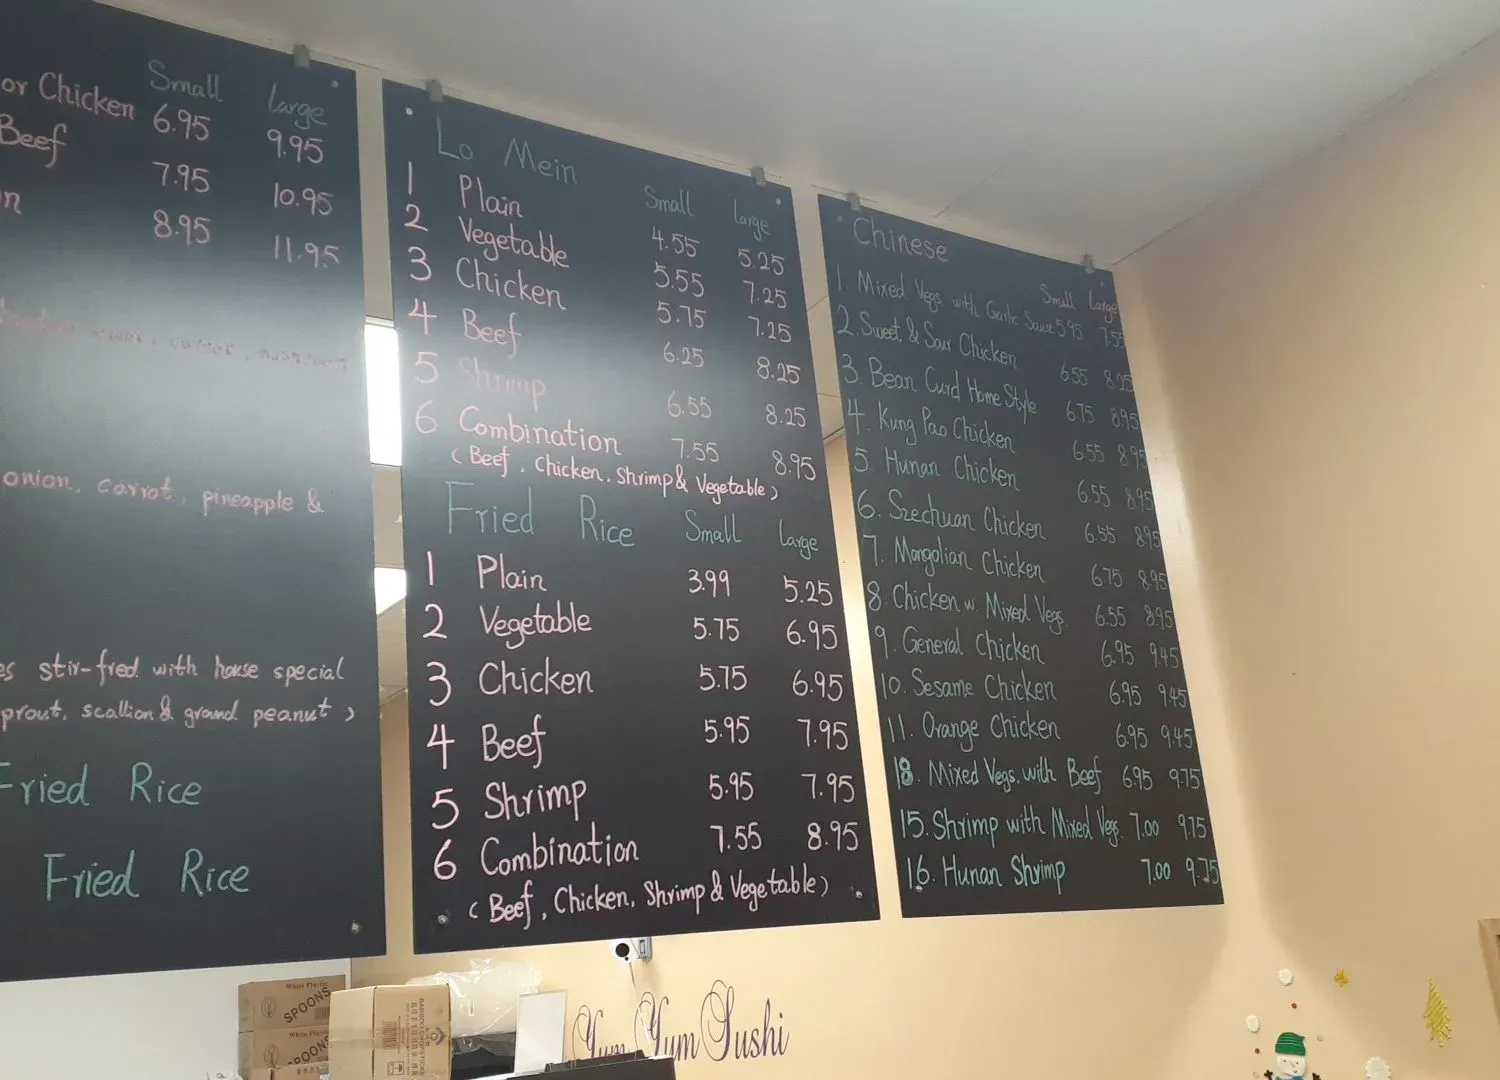 Small large
or Chicken 6.95 9.95
Beef 7.95 10.95
8.95 11.95
onion, carrot, pineapple &
stir-fred with house special
prout, scallion & ground peanut )
Fried Rice
Fried Rice
Lo Mein
Small large
1 Plain 4.55 5.25
2 Vegetable 5.55 7.25
3 Chicken 5.75 7.25
4 Beef 6.25 8.25
5 Shrimp 6.55 8.25
6 Combination 7.55 8.95
( Beef, chicken, shrimp & Vegetable )
Fried Rice Small large
1 Plain 3.99 5.25
2 Vegetable 5.75 6.95
3 Chicken 5.75 6.95
4 Beef 5.95 7.95
5 Shrimp 5.95 7.95
6 Combination 7.55 8.95
( Beef, Chicken, Shrimp & Vegetable )
Chinese
Small Large
1. Mixed Vegs with Garlic Sauce 5.95 7.55
2. Sweet & Sour Chicken 6.55 8.95
3. Bean Curd Home Style 6.75 8.95
4. Kung Pao Chicken 6.55 8.95
5. Hunan Chicken 6.55 8.95
6. Szechuan Chicken 6.55 8.95
7. Mongolian Chicken 6.75 8.95
8. Chicken w. Mixed Vegs. 6.55 8.95
9. General Chicken 6.95 9.45
10. Sesame Chicken 6.95 9.45
11. Orange Chicken 6.95 9.45
18. Mixed Vegs. with Beef 6.95 9.75
15. Shrimp with Mixed Vegs. 7.00 9.75
16. Hunan Shrimp 7.00 9.75
White Plastic
SPOONS
White Plastic
SPOONS
BAMBOO CHOPSTICKS
Yum Yum Sushi